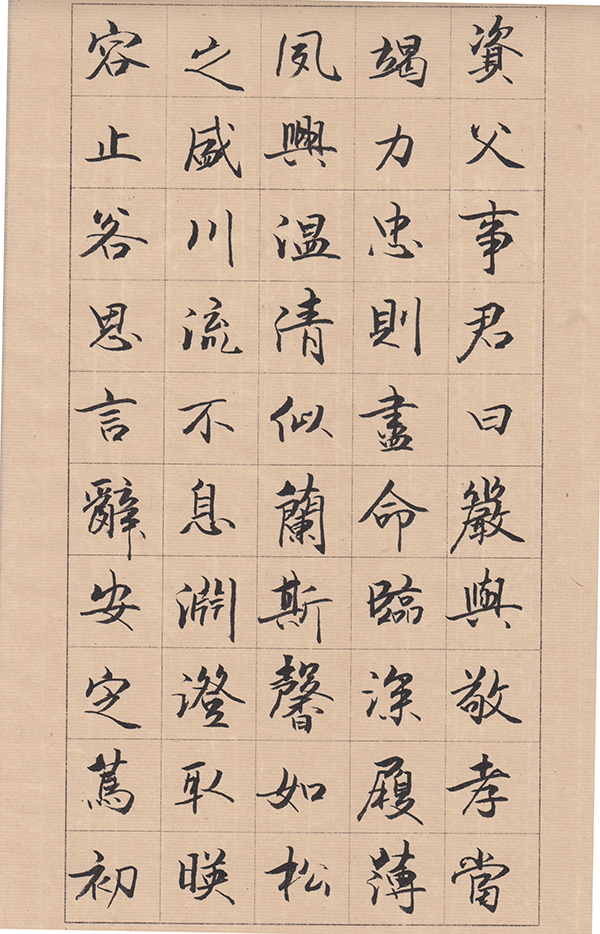 資父事君曰嚴與敬孝當
竭力忠則盡命臨深履薄
夙興温清似蘭斯馨如松
之盛川流不息淵澄取暎
容止若思言辭安定篤初